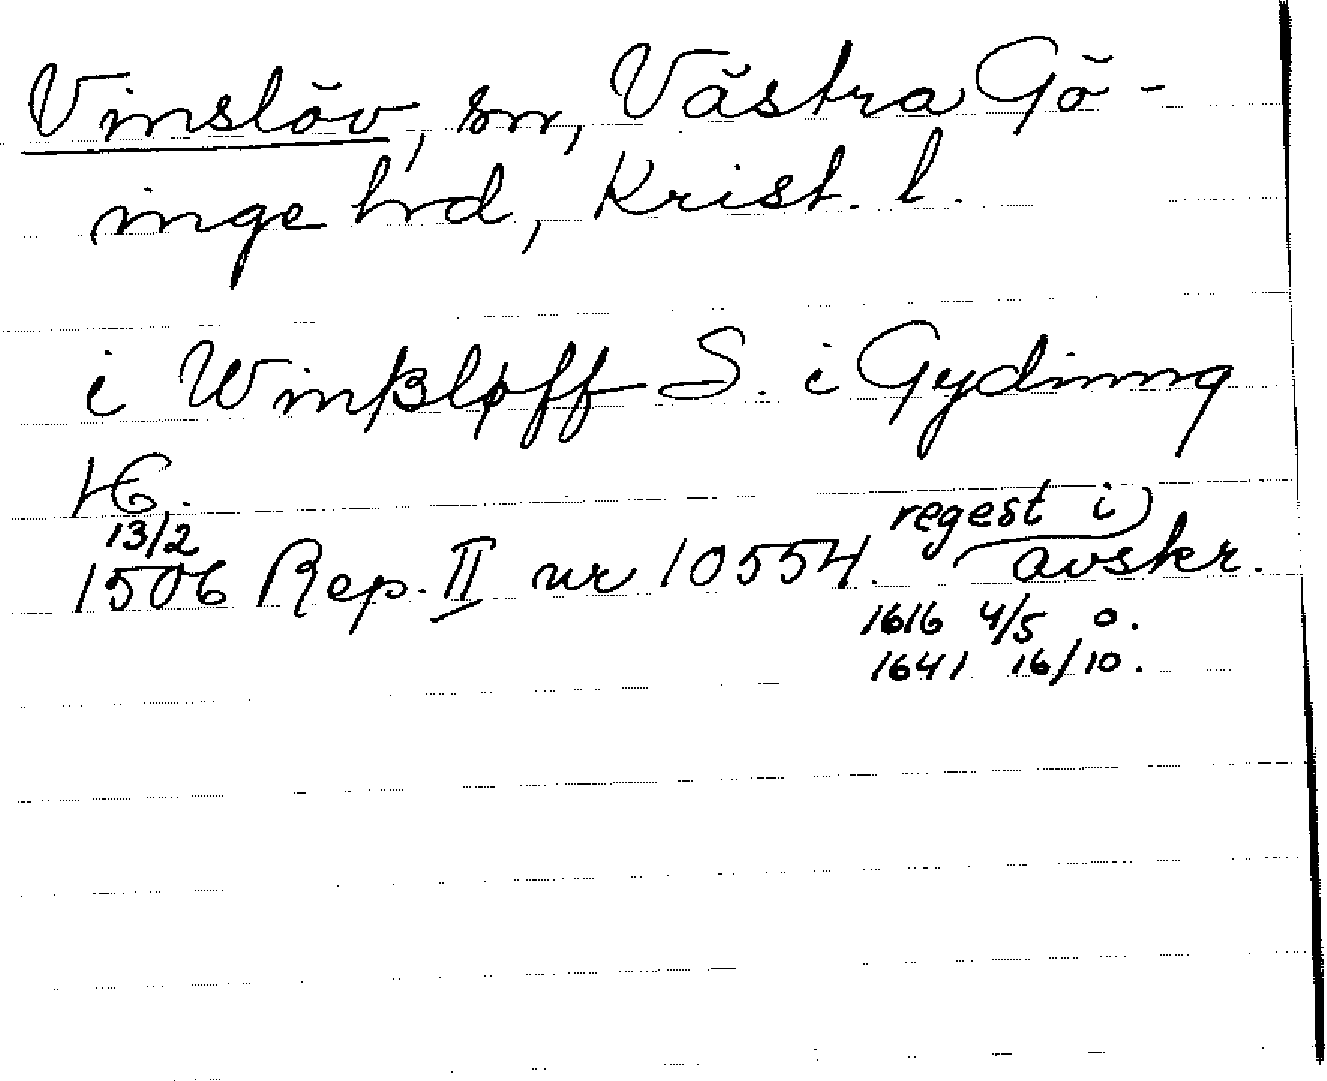 Vinslöv, sn, Västra Gö-
inge hrd, Krist. l.
i Winβløff S. i Gydinng
H.
13/2
1506 Rep. II nr 10554. regest i
avskr.
1616 4/5 o.
1641 16/10.